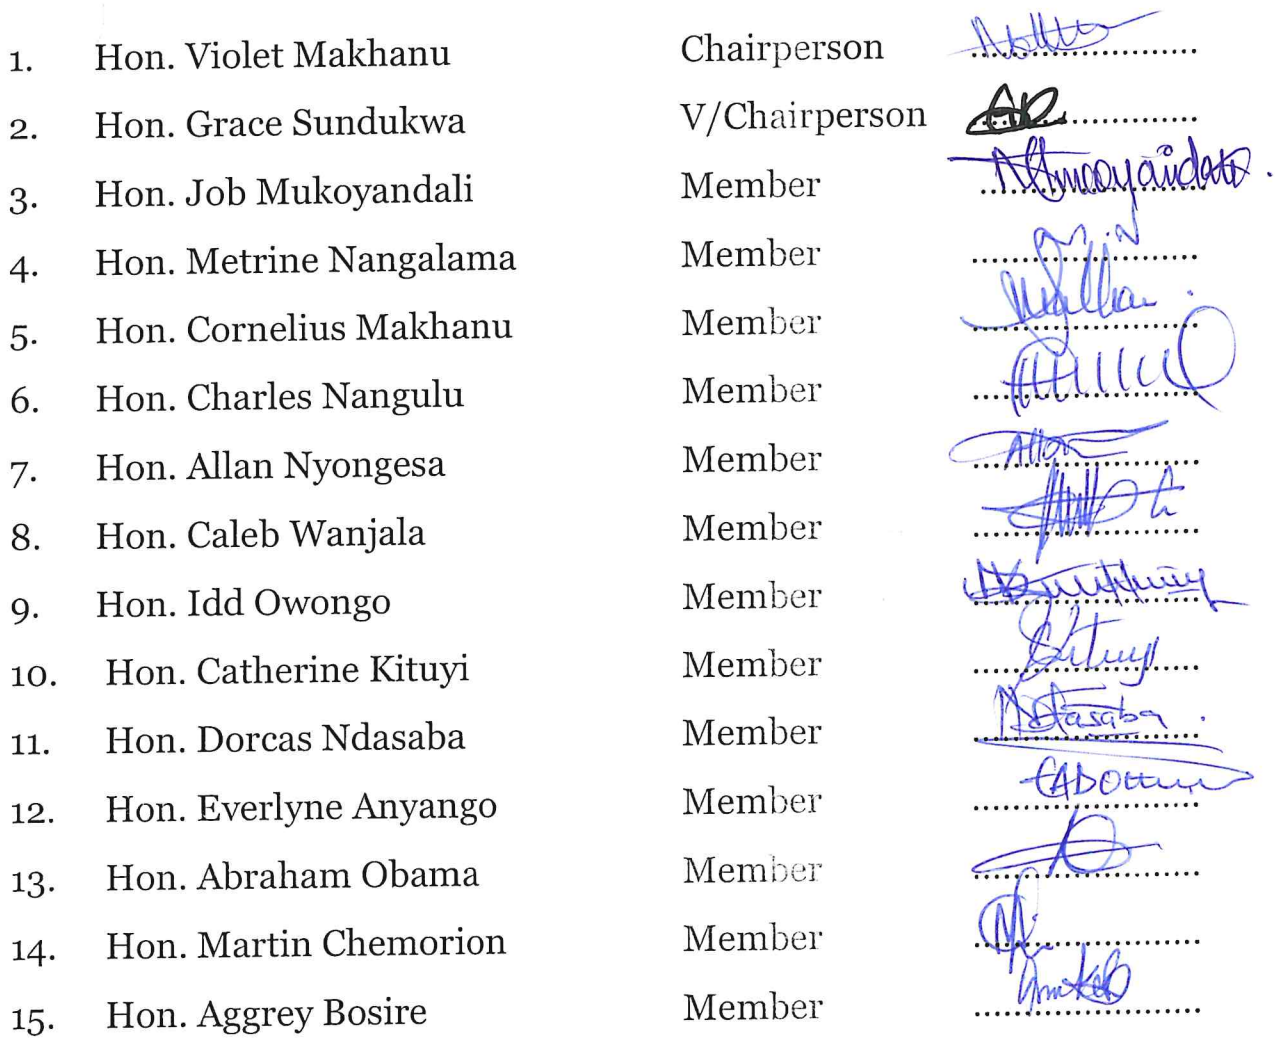 1. Hon. Violet Makhanu Chairperson ....................
2. Hon. Grace Sundukwa V/Chairperson ....................
3. Hon. Job Mukoyandali Member ....................
4. Hon. Metrine Nangalama Member ....................
5. Hon. Cornelius Makhanu Member ....................
6. Hon. Charles Nangulu Member ....................
7. Hon. Allan Nyongesa Member ....................
8. Hon. Caleb Wanjala Member ....................
9. Hon. Idd Owongo Member ....................
10. Hon. Catherine Kituyi Member .................... Kituyi
11. Hon. Dorcas Ndasaba Member .................... Ndasaba
12. Hon. Everlyne Anyango Member ....................
13. Hon. Abraham Obama Member ....................
14. Hon. Martin Chemorion Member ....................
15. Hon. Aggrey Bosire Member ....................